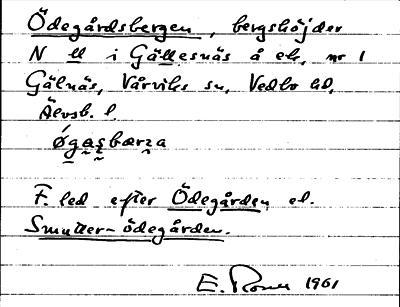 Ödegårdsbergen, bergshöjder
N ll i Gällesnäs å ek. nr 1
Gälnäs, Vårviks sn, Vedbo hd,
Älvsb. l.
øgasbærza
F. led efter Ödegården el.
Smutter-ödegården.
E. 1961